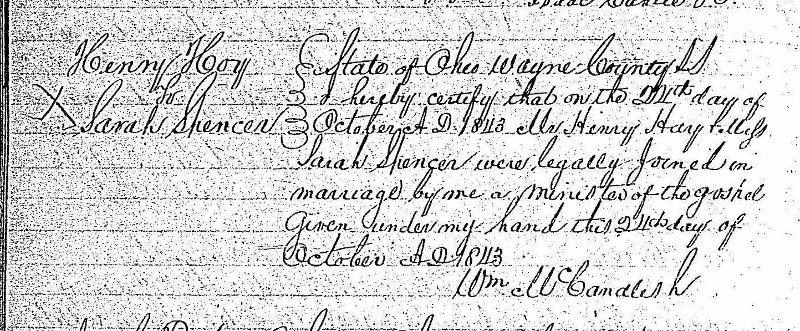 Henry Hoy
To
Sarah Spencer
State of Ohio Wayne County SS
I do hereby certify that on the 24th day of
October A D 1843 Mr Henry Hay & Miss
Sarah Spencer were legally Joined in
marriage by me a minister of the gospel
Given under my hand this 24th day of
October A D 1843
Wm McCandlish